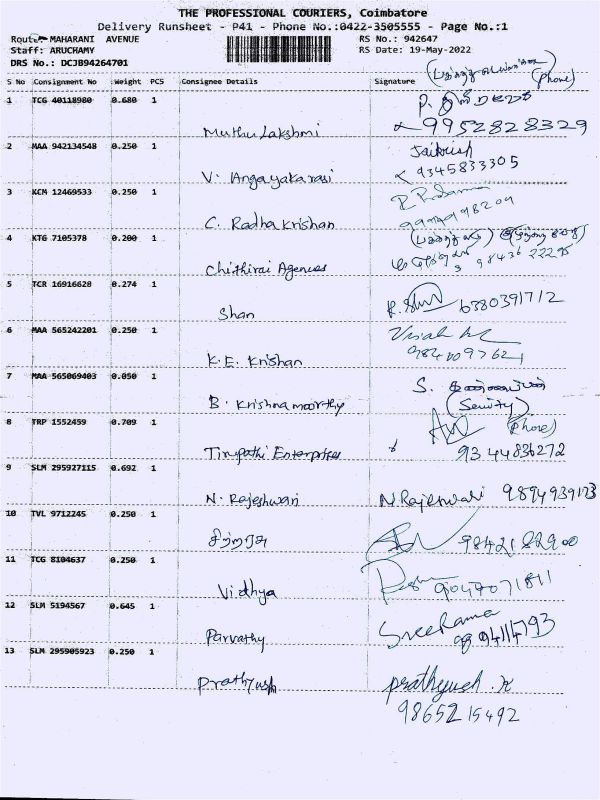 THE PROFESSIONAL COURIERS, Coimbatore
Delivery Runsheet - P41 - Phone No.:0422-3505555 - Page No.:1
Route: MAHARANI AVENUE RS No.: 942647
Staff: ARUCHAMY RS Date: 19-May-2022
DRS No.: DCJB94264701
(Phone)
S No Consignment No Weight PCS Consignee Details Signature
1 TCG 40118980 0.680 1
Muthu Lakshmi 9952828329
2 MAA 942134548 0.250 1
V. Angayakarasi 9345833305
3 KCM 12469533 0.250 1
C. Radha Krishan
4 KTG 7105378 0.200 1
Chithirai Agencies 98436 22295
5 TCR 16916628 0.274 1
Shan 6380391712
6 MAA 565242201 0.250 1
K.E. Krishan
7 MAA 565069403 0.050 1 S.
B. Krishnamoorthy
8 TRP 1552459 0.709 1 (Phone)
Tirupathi Enterprises 9344836272
9 SLM 295927115 0.692 1
N. Rajeshwari N Rajeshwari 9894939173
10 TVL 9712245 0.250 1
சிற்றரசு 9842182900
11 TCG 8104637 0.250 1
Vidhya
12 SLM 5194567 0.645 1
Parvathy SreeRama
13 SLM 295905923 0.250 1
Prathyush prathyush. K
9865215492